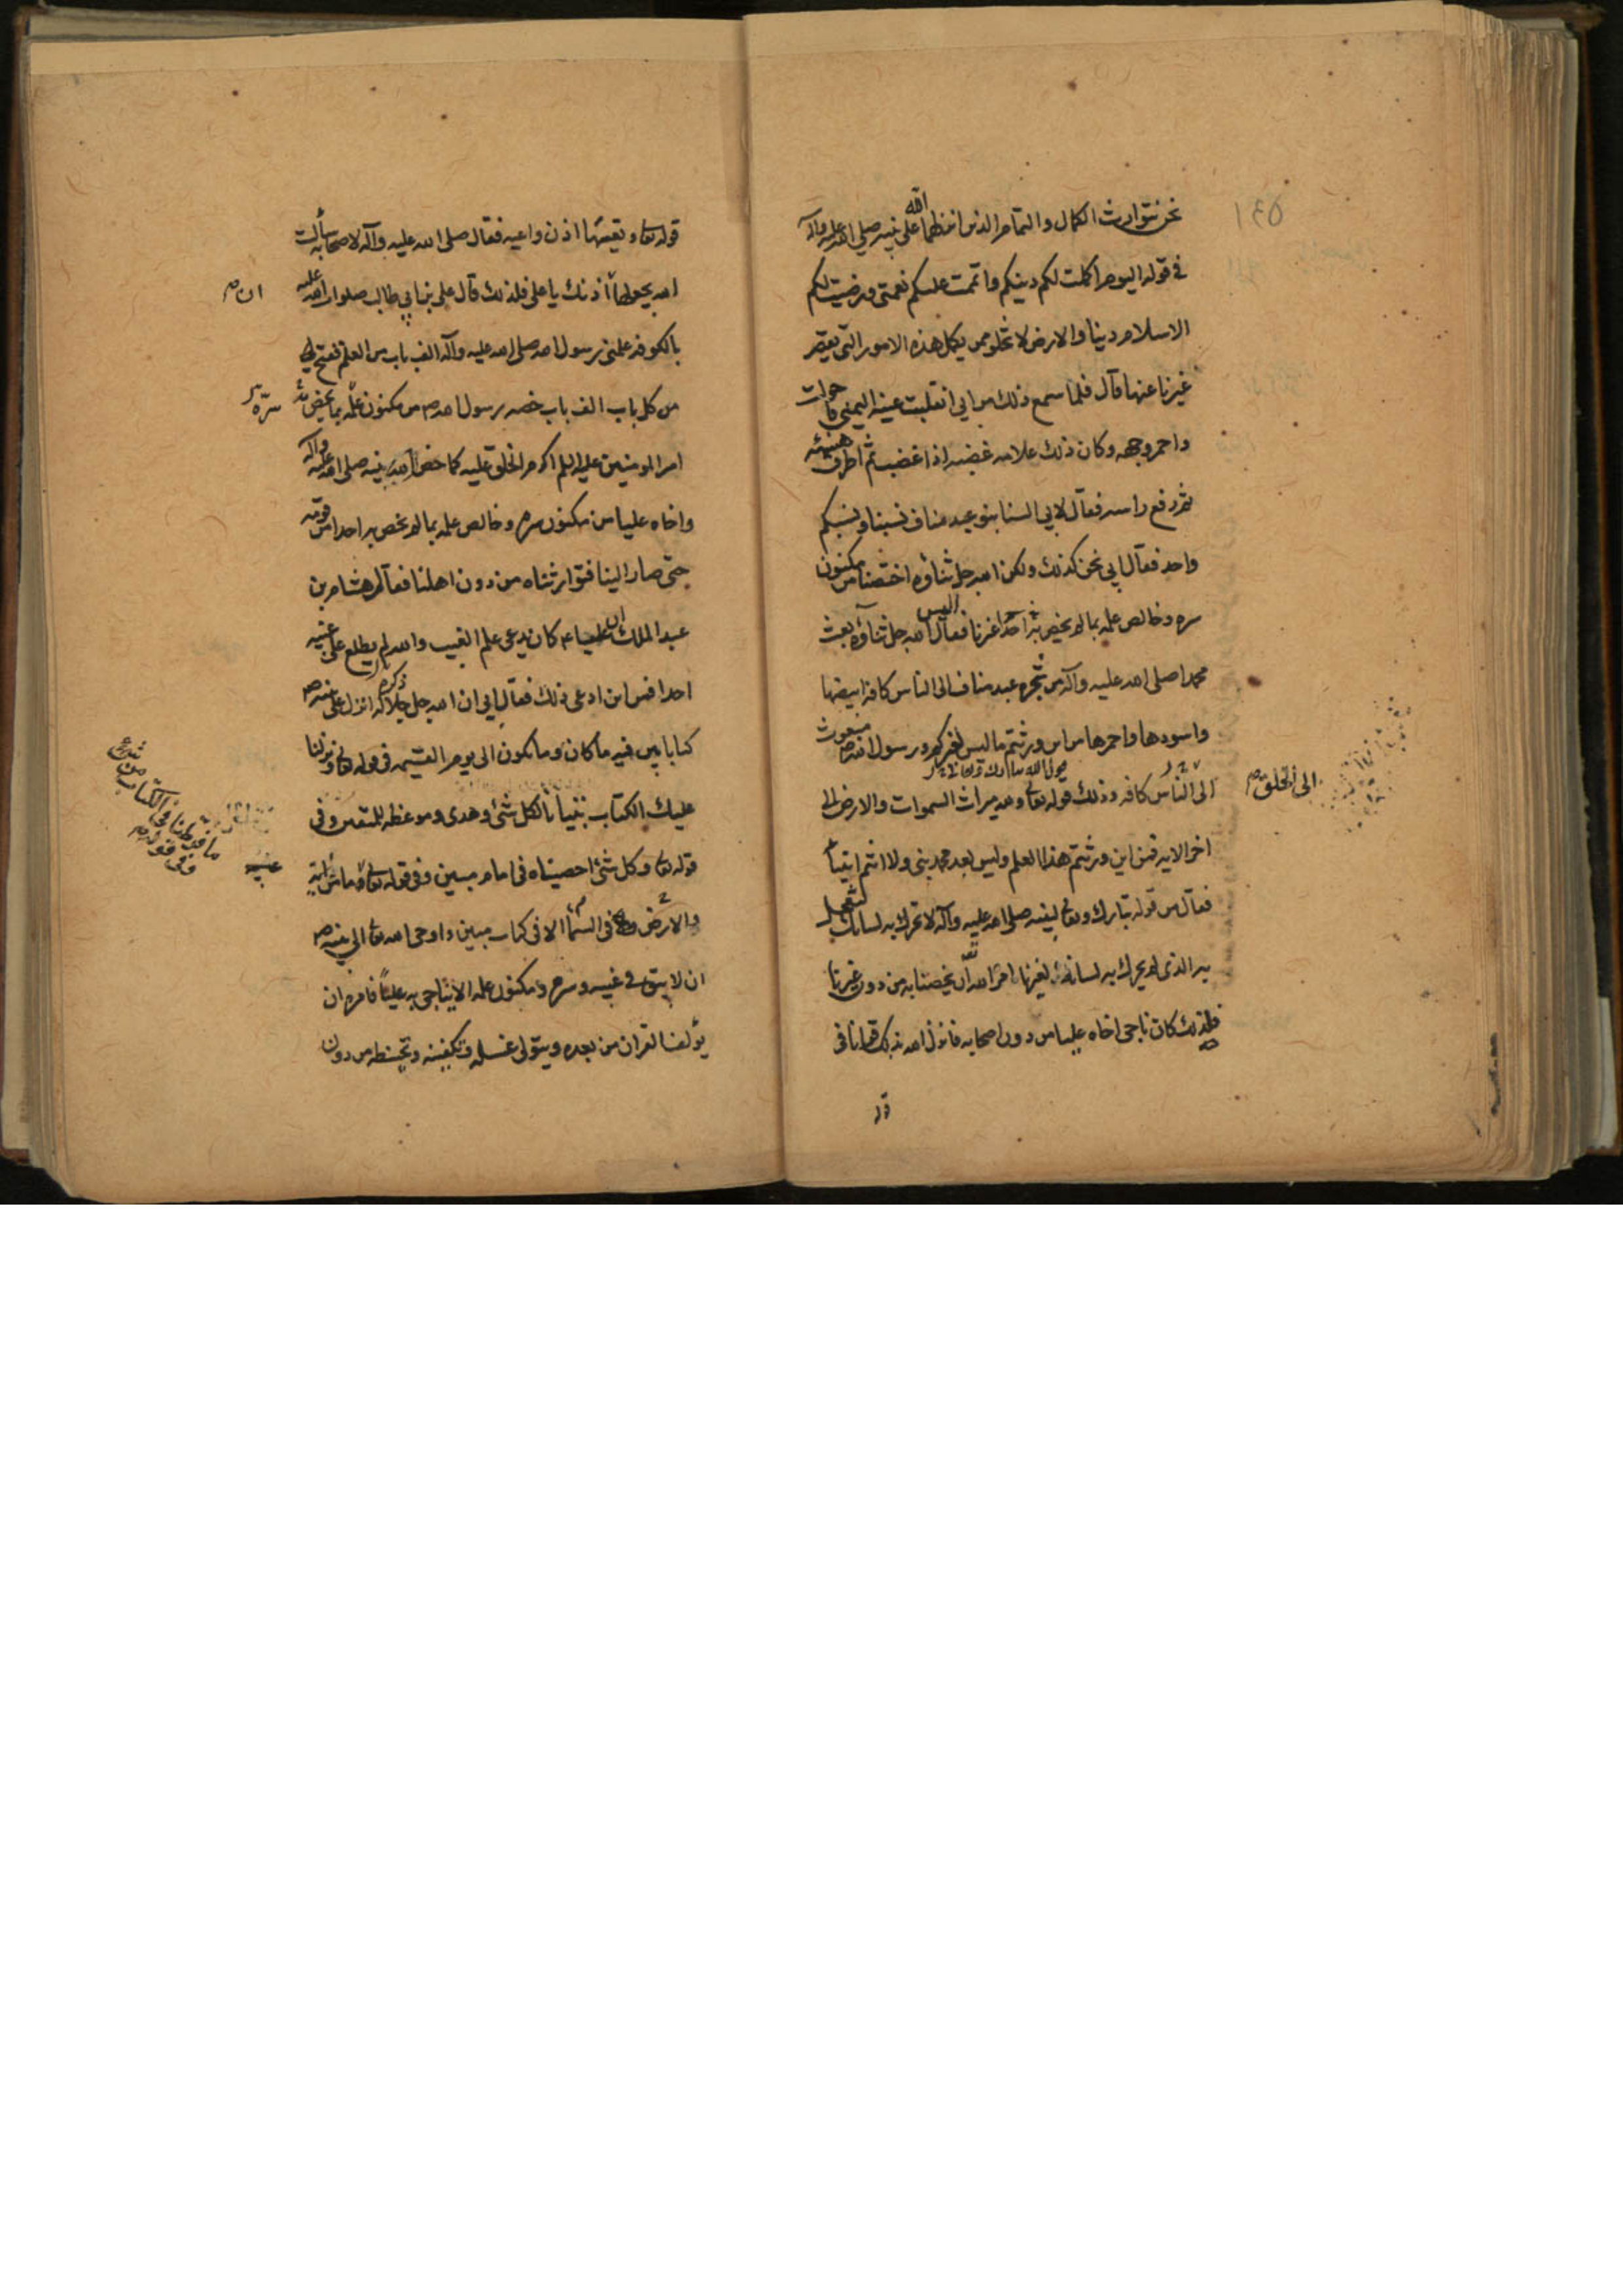 ١٤٥
نحن نتوارث الكمال والتمام الذين انزلهما الله على نبيه صلى الله عليه وآله
في قوله اليوم اكملت لكم دينكم واتممت عليكم نعمتى ورضيت لكم
الاسلام دينا والارض لا تخلو ممن يكمل هذه الامور التى يقصر
غيرنا عنها قال فلما سمع ذلك من ابي انقلبت عينه اليمنى فاحولت
واحمر وجهه وكان ذلك علامه غضبه اذا غضب ثم اطرق هنيئه
ثم رفع راسه فقال لابي السنا بنو عبد مناف نسبنا ونسبكم
واحد فقال ابي نحن كذلك ولكن الله جل ثناؤه اختصنا من مكنون
سره وخالص علمه بما لم يخص به احدا غيرنا فقال اليس الله جل ثناؤه بعث
محمدا صلى الله عليه وآله من شجره عبد مناف الى الناس كافه ابيضها
واسودها واحمرها من اين ورثتم ما ليس لغيركم ورسول الله مبعوث
الى الناس كافه وذلك قوله تعالى ولله ميراث السموات والارض الى
الى الخلق
اخر الايه فمن اين ورثتم هذا العلم وليس بعد محمد نبى ولا انتم انبياء
فقال من قوله تبارك وتعالى لنبيه صلى الله عليه وآله لا تحرك به لسانك لتعجل
به الذى لم يحرك به لسانه لغيرنا امره الله ان يخصنا به من دون غيرنا
فلذلك كان ناجى اخاه عليا من دون اصحابه فانزل الله بذلك قرانا فى
قوله تعالى وتعيها اذن واعيه فقال صلى الله عليه وآله لاصحابه سألت
الله يجعلها اذنك يا على فلذلك قال على بن ابي طالب صلوات الله عليه
ان
بالكوفه علمنى رسول الله صلى الله عليه وآله الف باب من العلم يفتح لى
من كل باب الف باب خصه رسول الله ص من مكنون علمه بما يخص به
سره
امير المومنين عليه السلم اكرم الخلق عليه كما خص الله نبيه صلى الله عليه وآله
واخاه عليا من مكنون سره وخالص علمه بما لم يخص به احدا من قومه
حتى صار الينا فتوارثناه من دون اهلنا فقال هشام بن
عبد الملك ان عليا ع كان يدعى علم الغيب والله لم يطلع على غيبه
احدا فمن اين ادعى ذلك فقال ابي ان الله جل ذكره انزل على نبيه ص
كتابا بين فيه ما كان وما يكون الى يوم القيمه فى قوله تعالى ونزلنا
عليك الكتاب تبيانا لكل شئ وهدى وموعظه للمتقين وفى
قوله تعالى وكل شئ احصيناه فى امام مبين وفى قوله تعالى وما من غائبة
ما فرطنا فى الكتاب من شئ
وفى قوله
فى السماء والارض الا فى كتاب مبين واوحى الله تعالى الى نبيه ص
ان لا يبقى فى غيبه وسره ومكنون علمه الا يناجى به عليا فامره ان
يؤلف القران من بعده ويتولى غسله وتكفينه وتحنيطه من دون